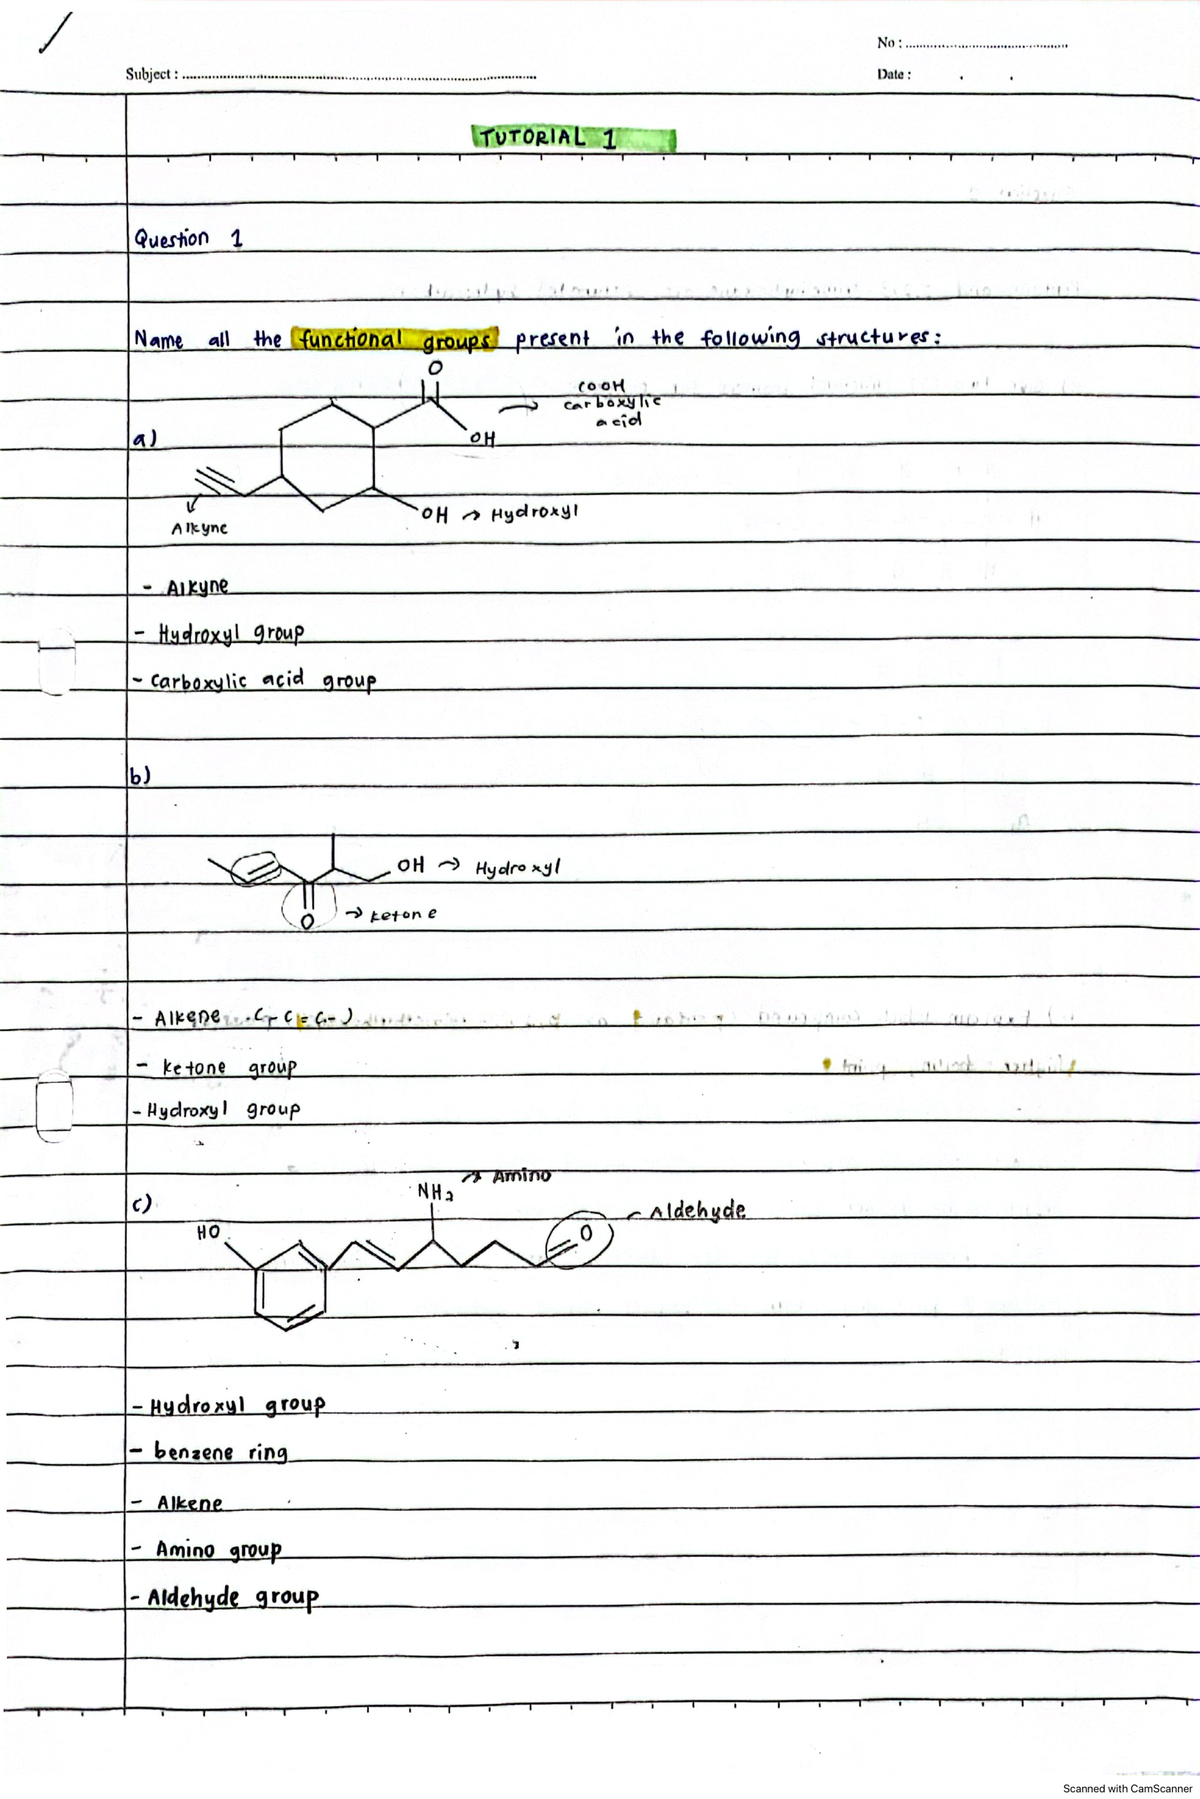 No :
Subject :
Date :
TUTORIAL 1
Question 1
Name all the functional groups present in the following structures:
a)
O
OH
COOH
carboxylic
acid
OH → Hydroxyl
Alkyne
- Alkyne
- Hydroxyl group
- Carboxylic acid group
b)
OH → Hydroxyl
O → ketone
- Alkene (- C = C - )
- ketone group
- Hydroxyl group
c)
NH2 → Amino
Aldehyde
HO
O
- Hydroxyl group
- benzene ring
- Alkene
- Amino group
- Aldehyde group
Scanned with CamScanner